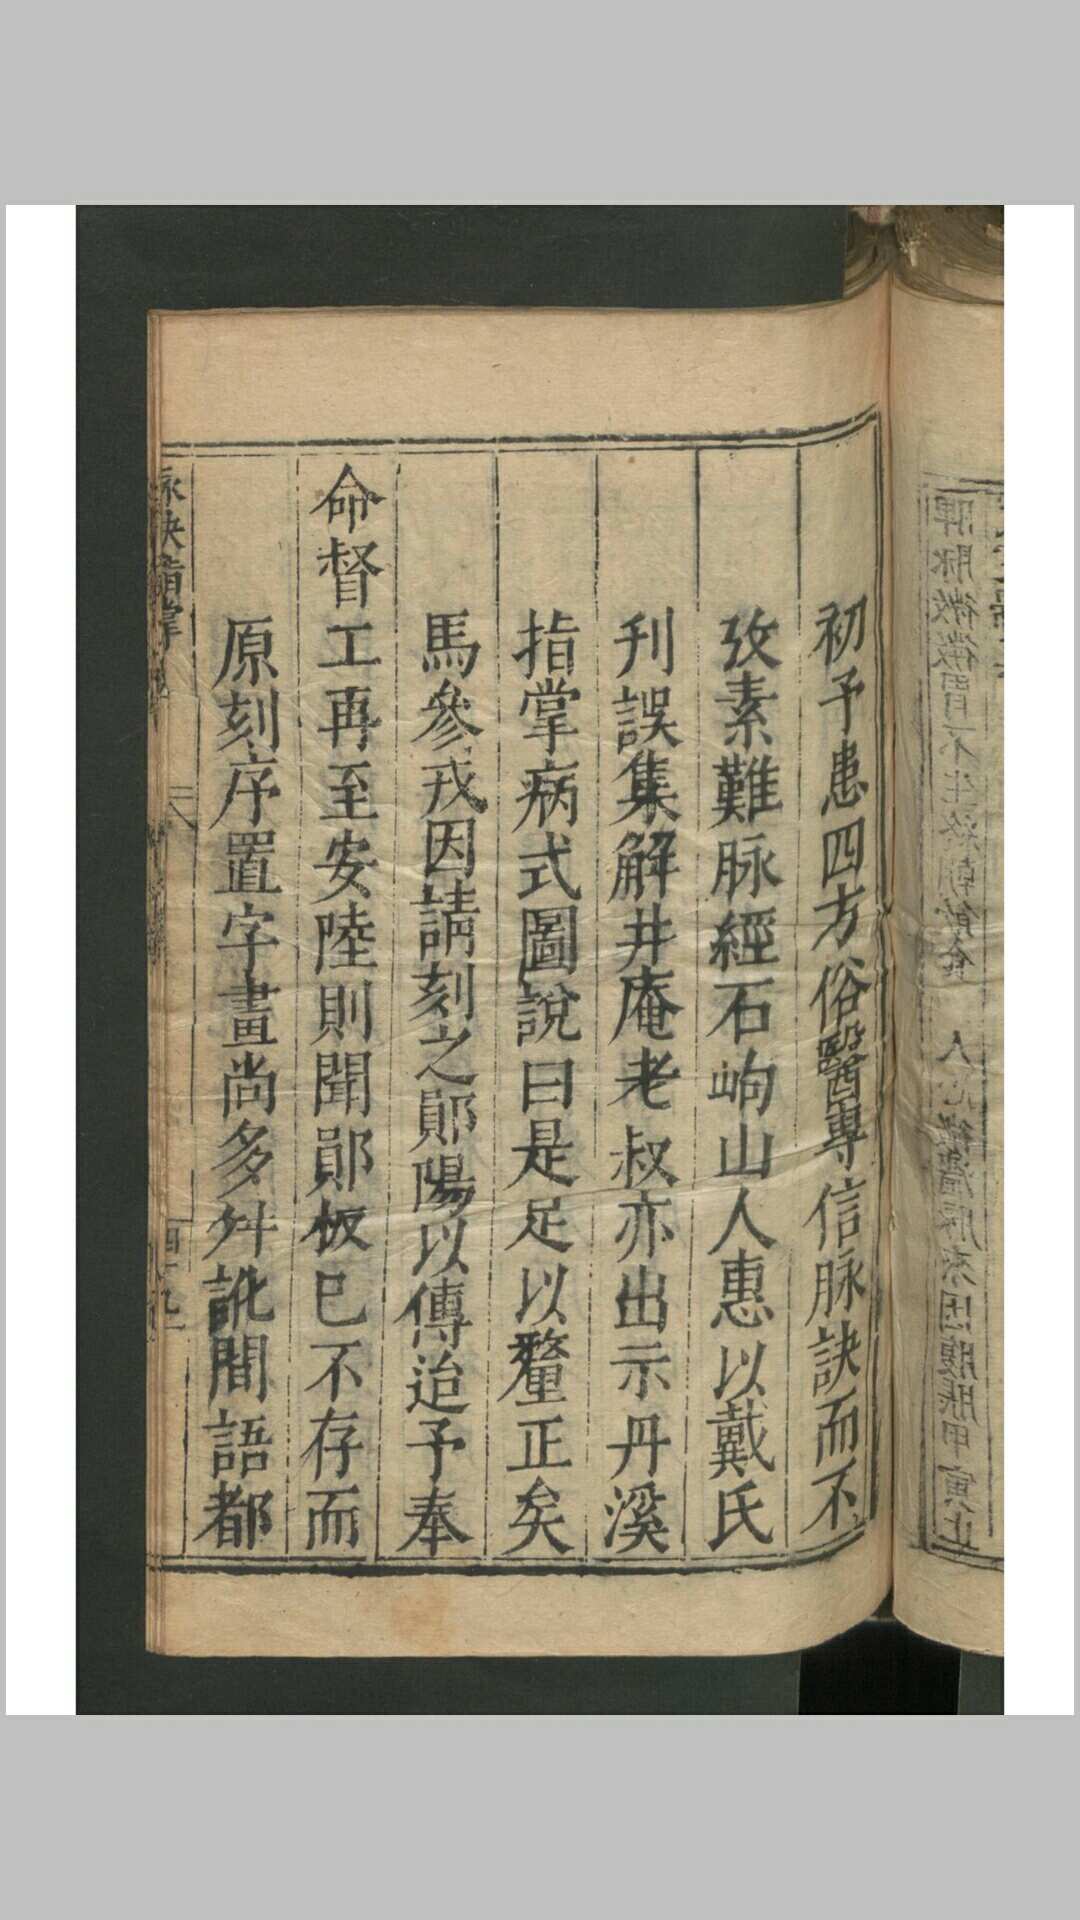 初予患四方俗醫專信脉訣而不
攷素難脉經石岣山人惠以戴氏
刋誤集解井庵老叔亦出示丹溪
指掌病式圖說曰是足以釐正矣
馬參戎因請刻之鄖陽以傳迨予奉
命督工再至安陸則聞鄖板已不存而
原刻序置字畫尚多舛訛間語都
脉訣指掌